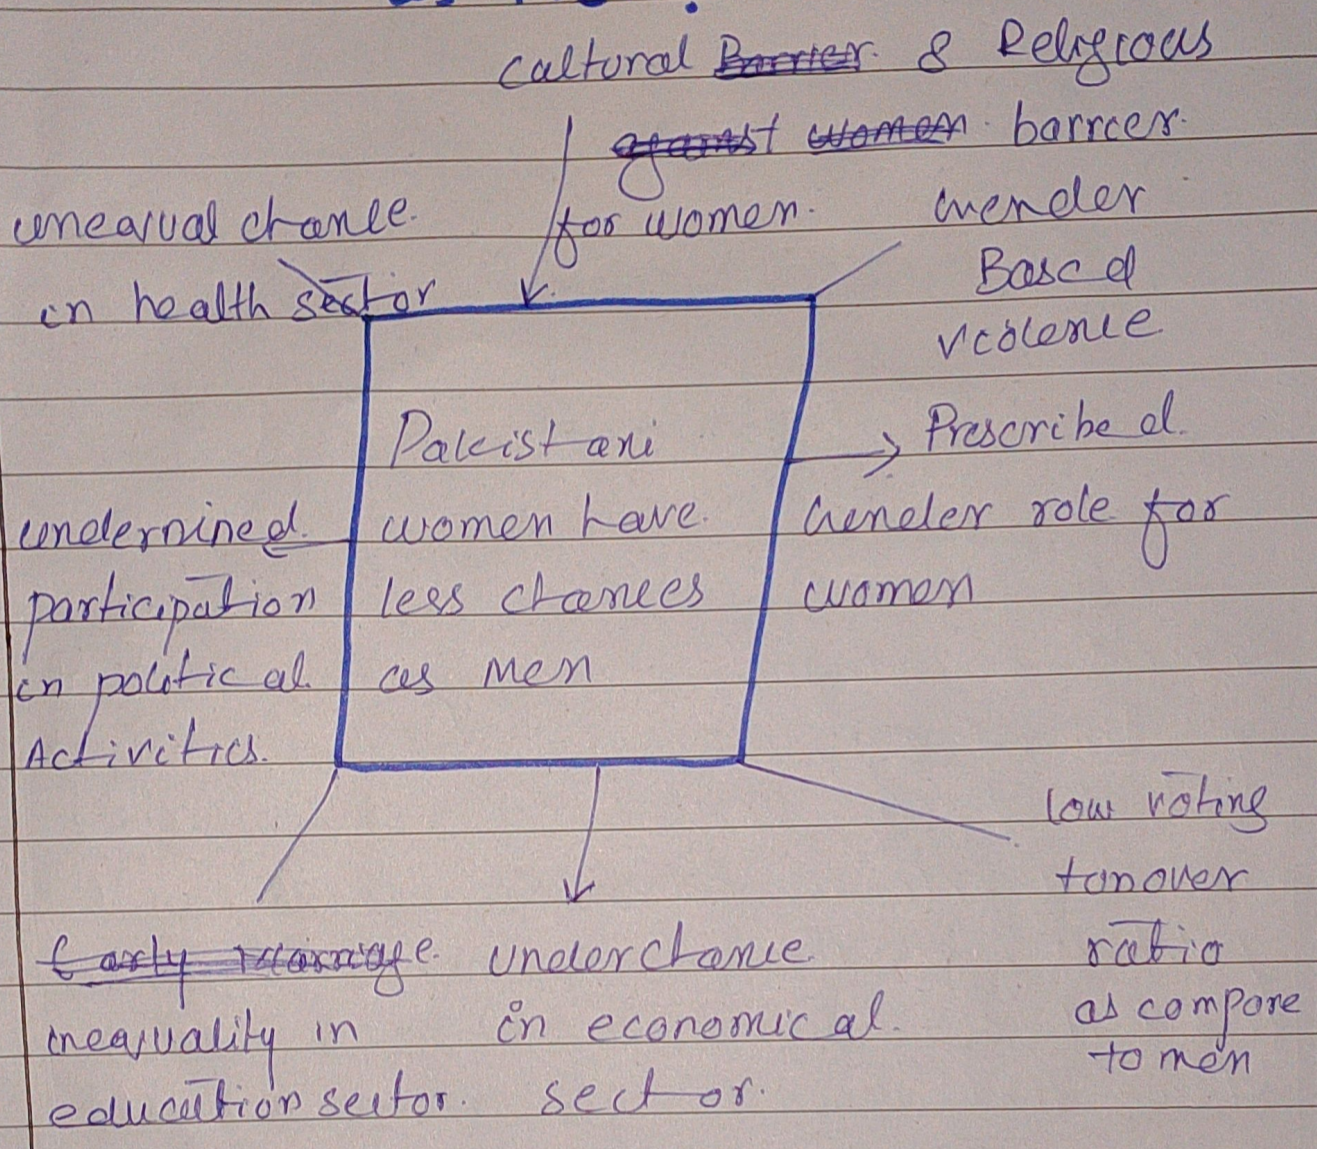 cultural Barrier & Religious
against women barrier.
for women.
unequal chance
in health sector
Gender
Based
violence
Pakistani
women have
less chances
as men
Prescribed
Gender role for
women
undermined
participation
in political
Activities.
low voting
tonover
ratio
as compare
to men
Early Marriage
inequality in
education sector.
under chance
in economical
sector.